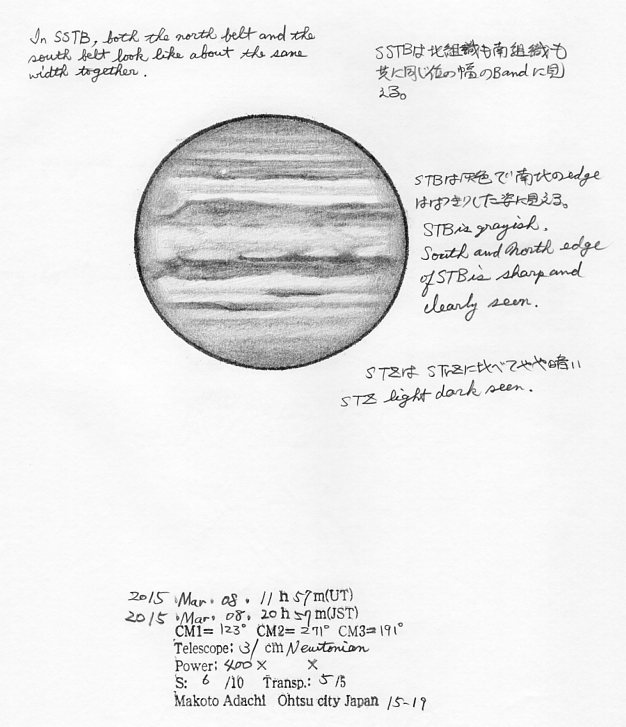 In SSTB, both the north belt and the
south belt look like about the same
width together.
SSTBは北組織も南組織も
共に同じ位の幅のBandに見
える。
STBは灰色で南北のedge
ははっきりした姿に見える。
STB is grayish.
South and North edge
of STB is sharp and
clearly seen.
STZは STrZに比べてやや暗い
STZ light dark seen.
2015 Mar. 08. 11h 57m(UT)
2015 Mar. 08. 20h 57m(JST)
CM1= 123° CM2= 271° CM3= 191°
Telescope: 31 cm Newtonian
Power: 400 × ×
S: 6 /10 Transp.: 5/5
Makoto Adachi Ohtsu city Japan 15-19